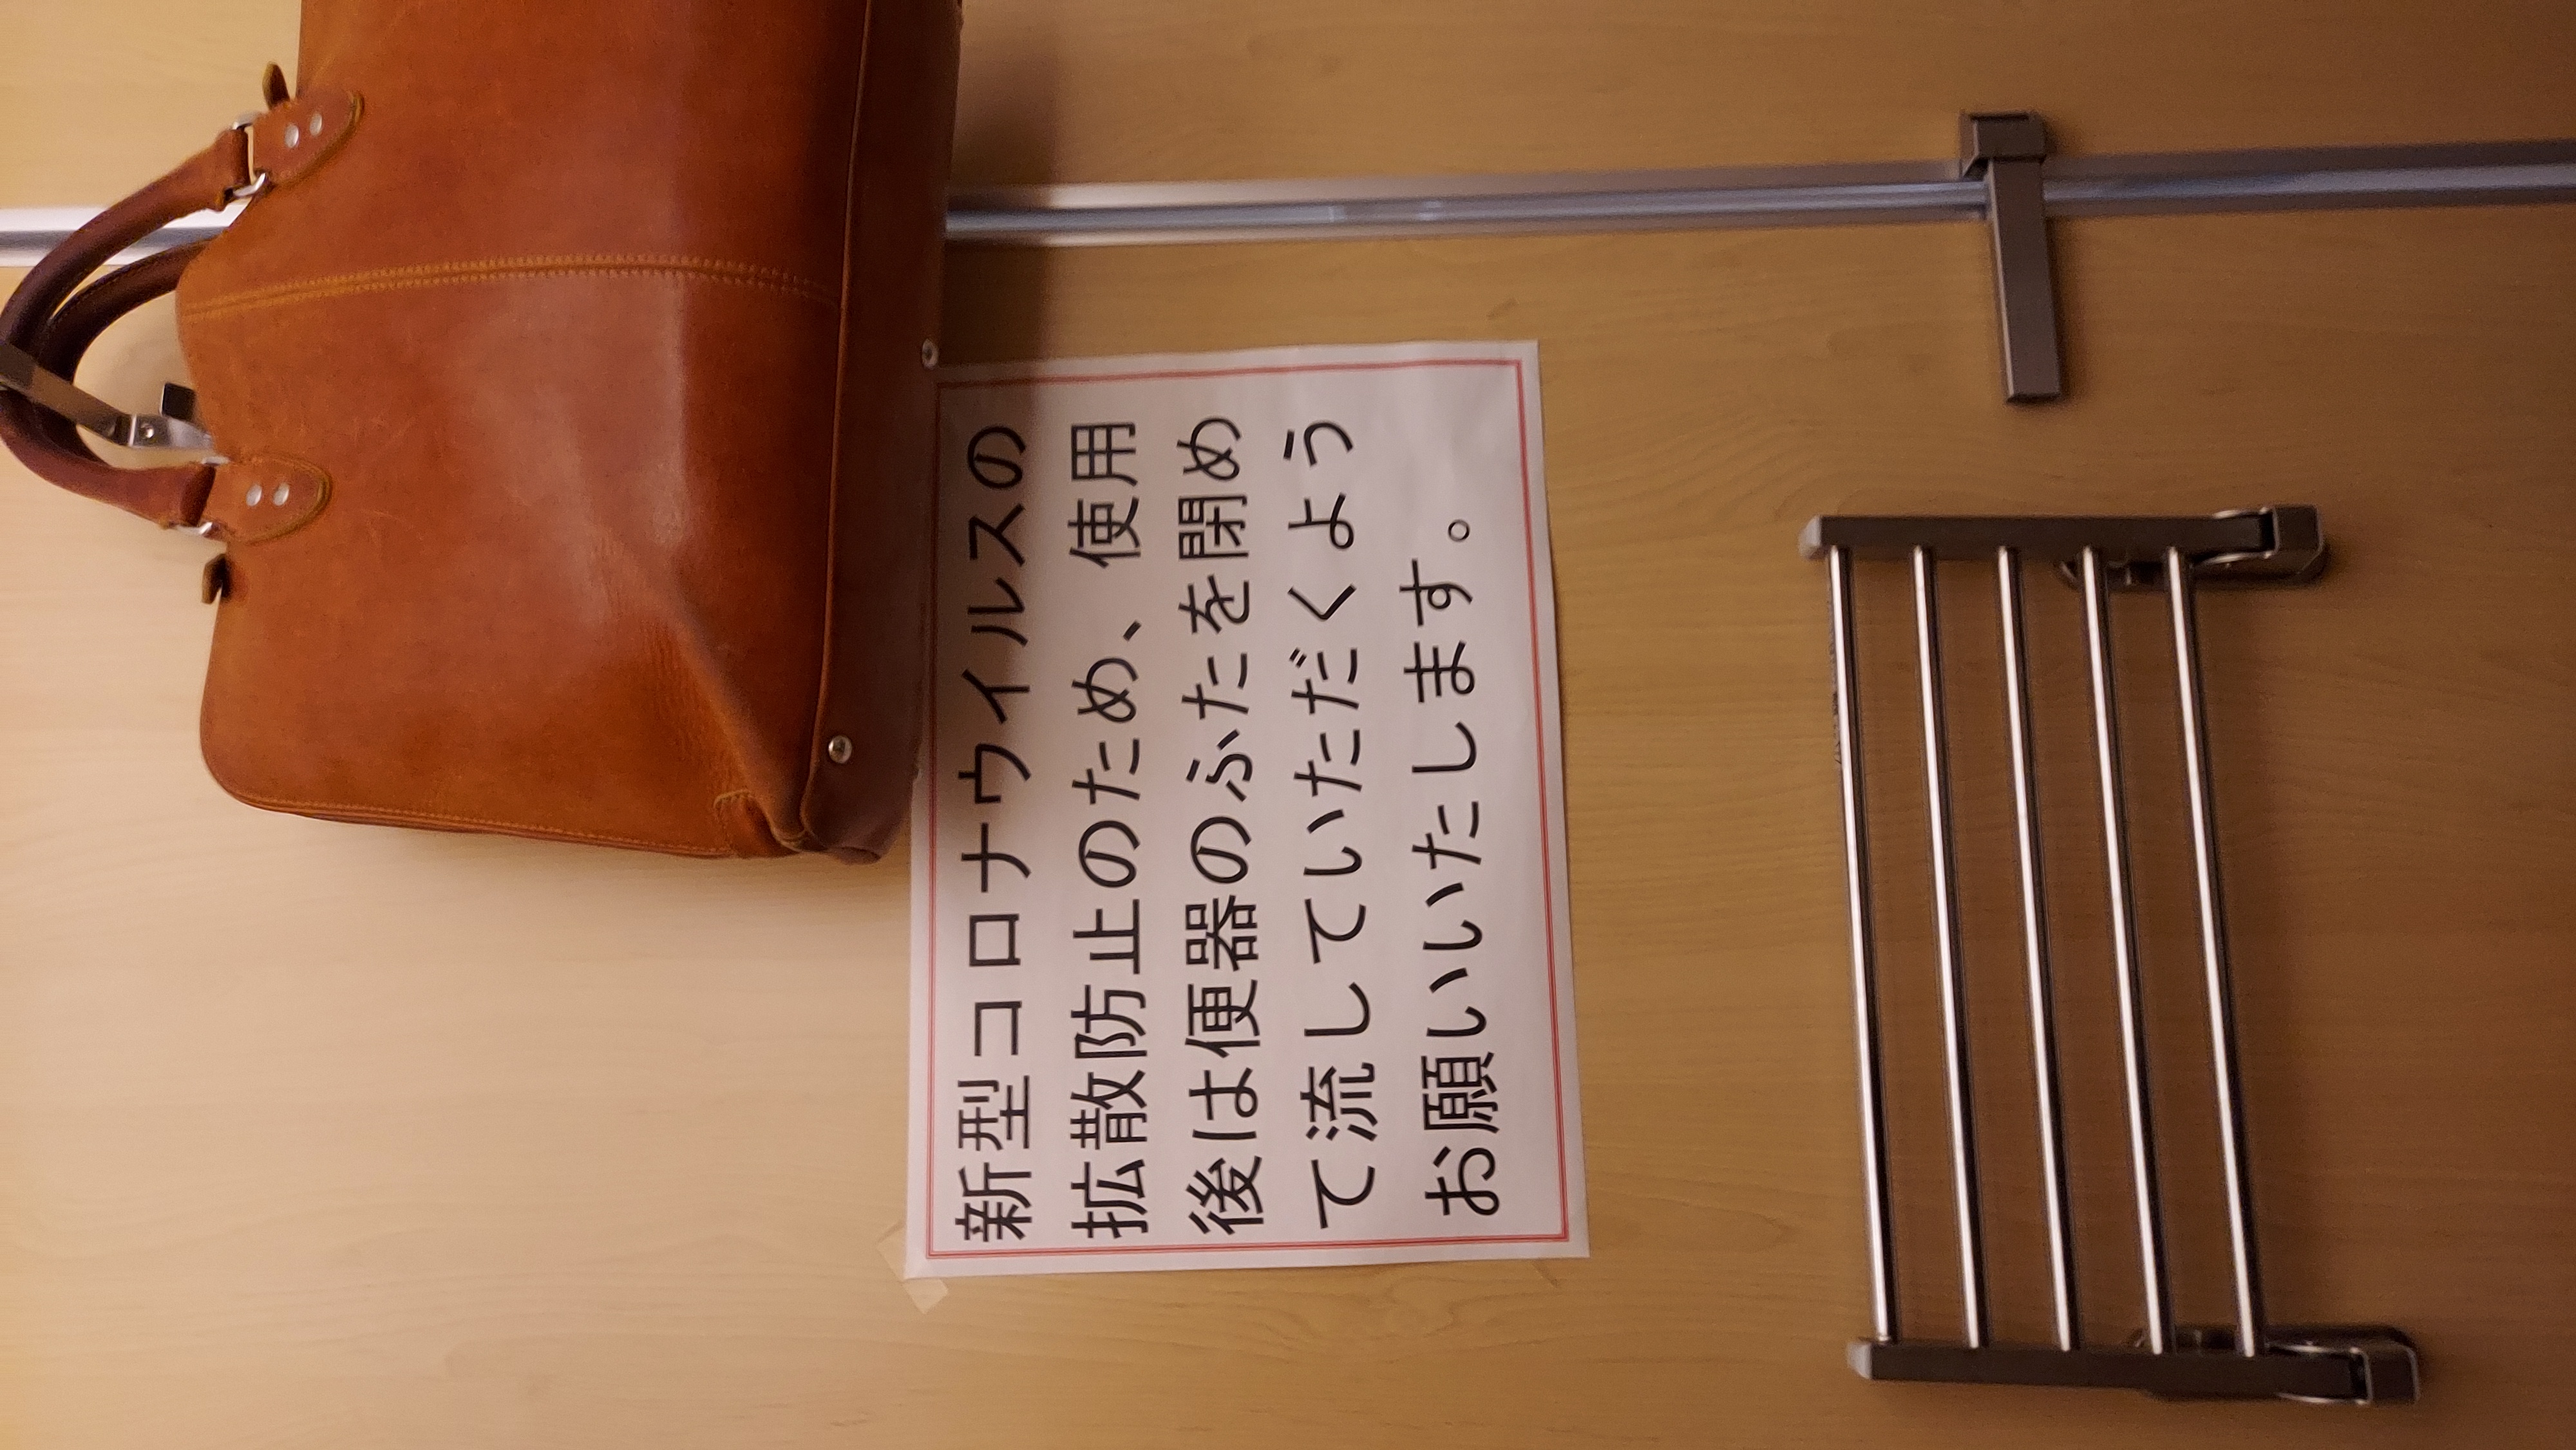 新型コロナウイルスの
拡散防止のため、使用
後は便器のふたを閉め
て流していただくよう
お願いいたします。